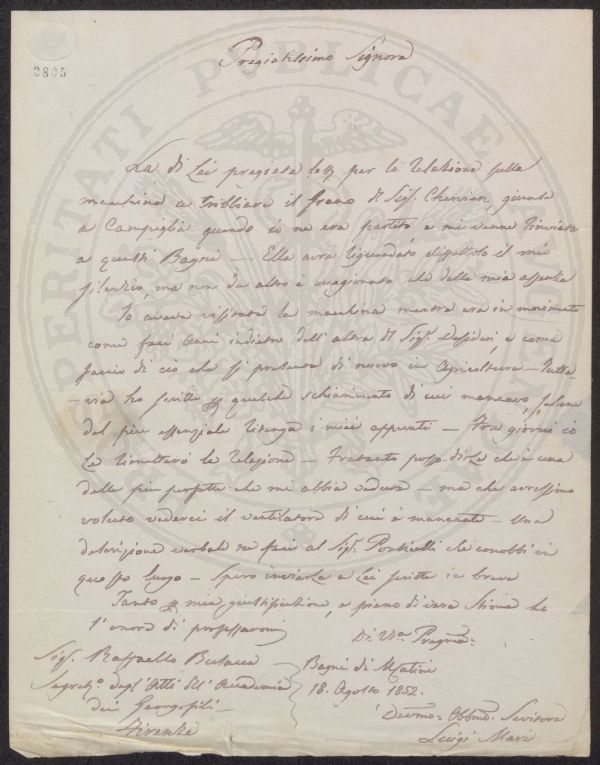 2805
Pregiatissimo Signore
La di Lei pregiata per la relazione sulla
macchina a tribbiare il grano del Sig. giunse
a Campiglia quando io ne era partito e mi venne rinviata
a questi Bagni — Ella avrà riguardato il mio
silenzio, ma non da altro è cagionato che dalla mia assenza
Io aveva visitata la macchina mentre era in movimento
come feci anni indietro dell'altra del Sig. Desideri, e come
faccio di ciò che si presenta di nuovo in Agricoltura — Tutta
-via ho scritto per qualche schiarimento di cui mancavo, sebene
del più essenziale tenga i miei appunti — Fra giorni io
Le rimetterò la relazione — Frattanto posso dirLe che è una
delle più perfette che mi abbia veduta — ma che avressimo
voluto vederci il ventilatore di cui è mancante — Una
descrizione verbale ne feci al Sig. Ponticelli che conobbi in
questo luogo — Spero inviarla a Lei scritta in breve
Tanto per mia giustificazione, e pieno di vera stima ho
l'onore di professarmi
Di Va. Pregma.
Sig. Raffaello Busacca
Segreto. degl'Atti dell'Accademia
dei Georgofili —
Firenze
Bagni di
18. Agosto 1852.
Devmo. Obbmo. Servitore
Luigi Mari
SPERITATI PUBLICAE